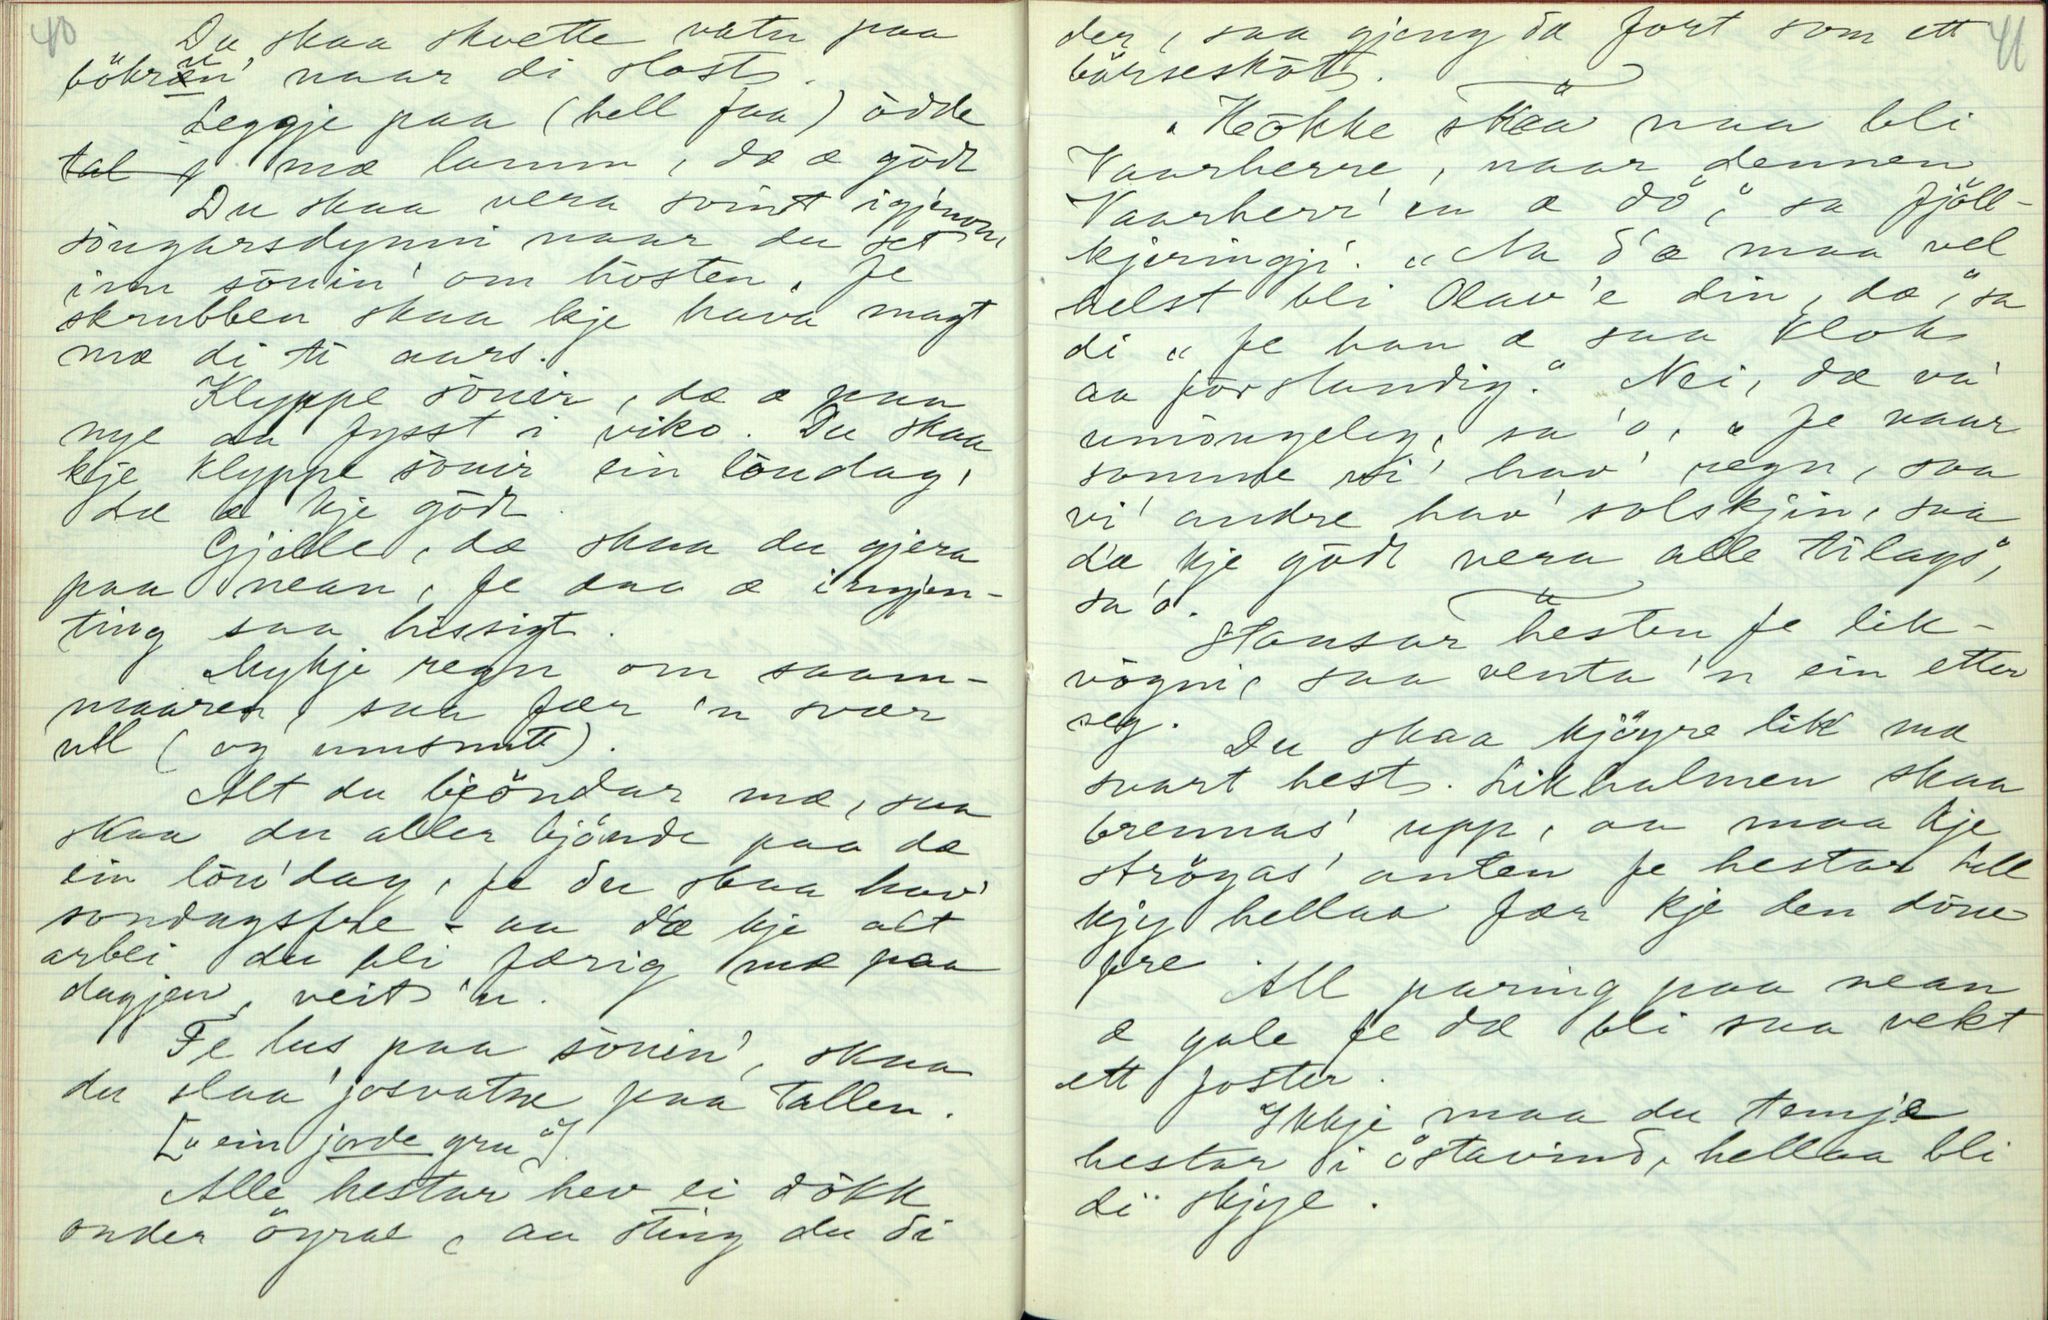 40
Du skaa skvette vatn paa
bökran' naar di slost.
Leggje paa (hell faa) ödde
tal mæ lamm, dæ æ gödt
Du skaa vera svint igjenom
söngarsdynni naar du set
inn sönin' om hösten, fe
skrubben skaa kje hava magt
mæ di ti aars.
Klyppe söuir, dæ æ paa
nye aa fysst i viko. Du skaa
kje klyppe söuir ein löndag,
dæ æ kje gödt.
Gjelle, dæ skaa du gjera
paa nean, fe daa æ ingjen-
ting saa hissigt.
Mykje regn om saam-
maaren, saa fær 'n svær
ull (og umsnutt).
Alt du bjöndar mæ, saa
skaa du aller bjönde paa dæ
ein lön'dag, fe du skaa hav'
sondagsfre - aa d'æ kje alt
arbei du bli færig mæ paa
dagjen, veit 'n.
Fe lus paa söuin', skaa
du slaa josvatne paa tallen.
[„ein jorde gru"]
Alle hestar hev ei dökk
onder öyrae, aa sting du di
41
der, saa gjeng dæ fort som ett
börseskot.
„Hökke skaa naa bli
Vaarherre, naar dennen
Vaarherr'en æ dö", sa fjöll-
kjeringji. „Na d'æ maa vel
helst bli Olav'e din, dæ", sa
di „fe han æ saa klok
aa förstandig." Nei, dæ va'
umöugeleg, sa 'o, „fe naar
somme vi' hav' regn, saa
vi' andre hav' solskjin, saa
d'æ kje gödt vera alle tilags",
sa 'o.
Stansar hesten fe lik-
vögni, saa venta 'n ein etter
seg.
Du skaa kjöyre lik mæ
svart hest. Likhalmen skaa
brennas' upp, aa maa kje
ströyas' anten fe hestar hell
kjy hellaa fær kje den döue
fre
All paring paa nean
æ gale fe dæ bli saa vekt
ett foster.
Ikkje maa du temje
hestar i östavind, hellaa bli
di skjye.